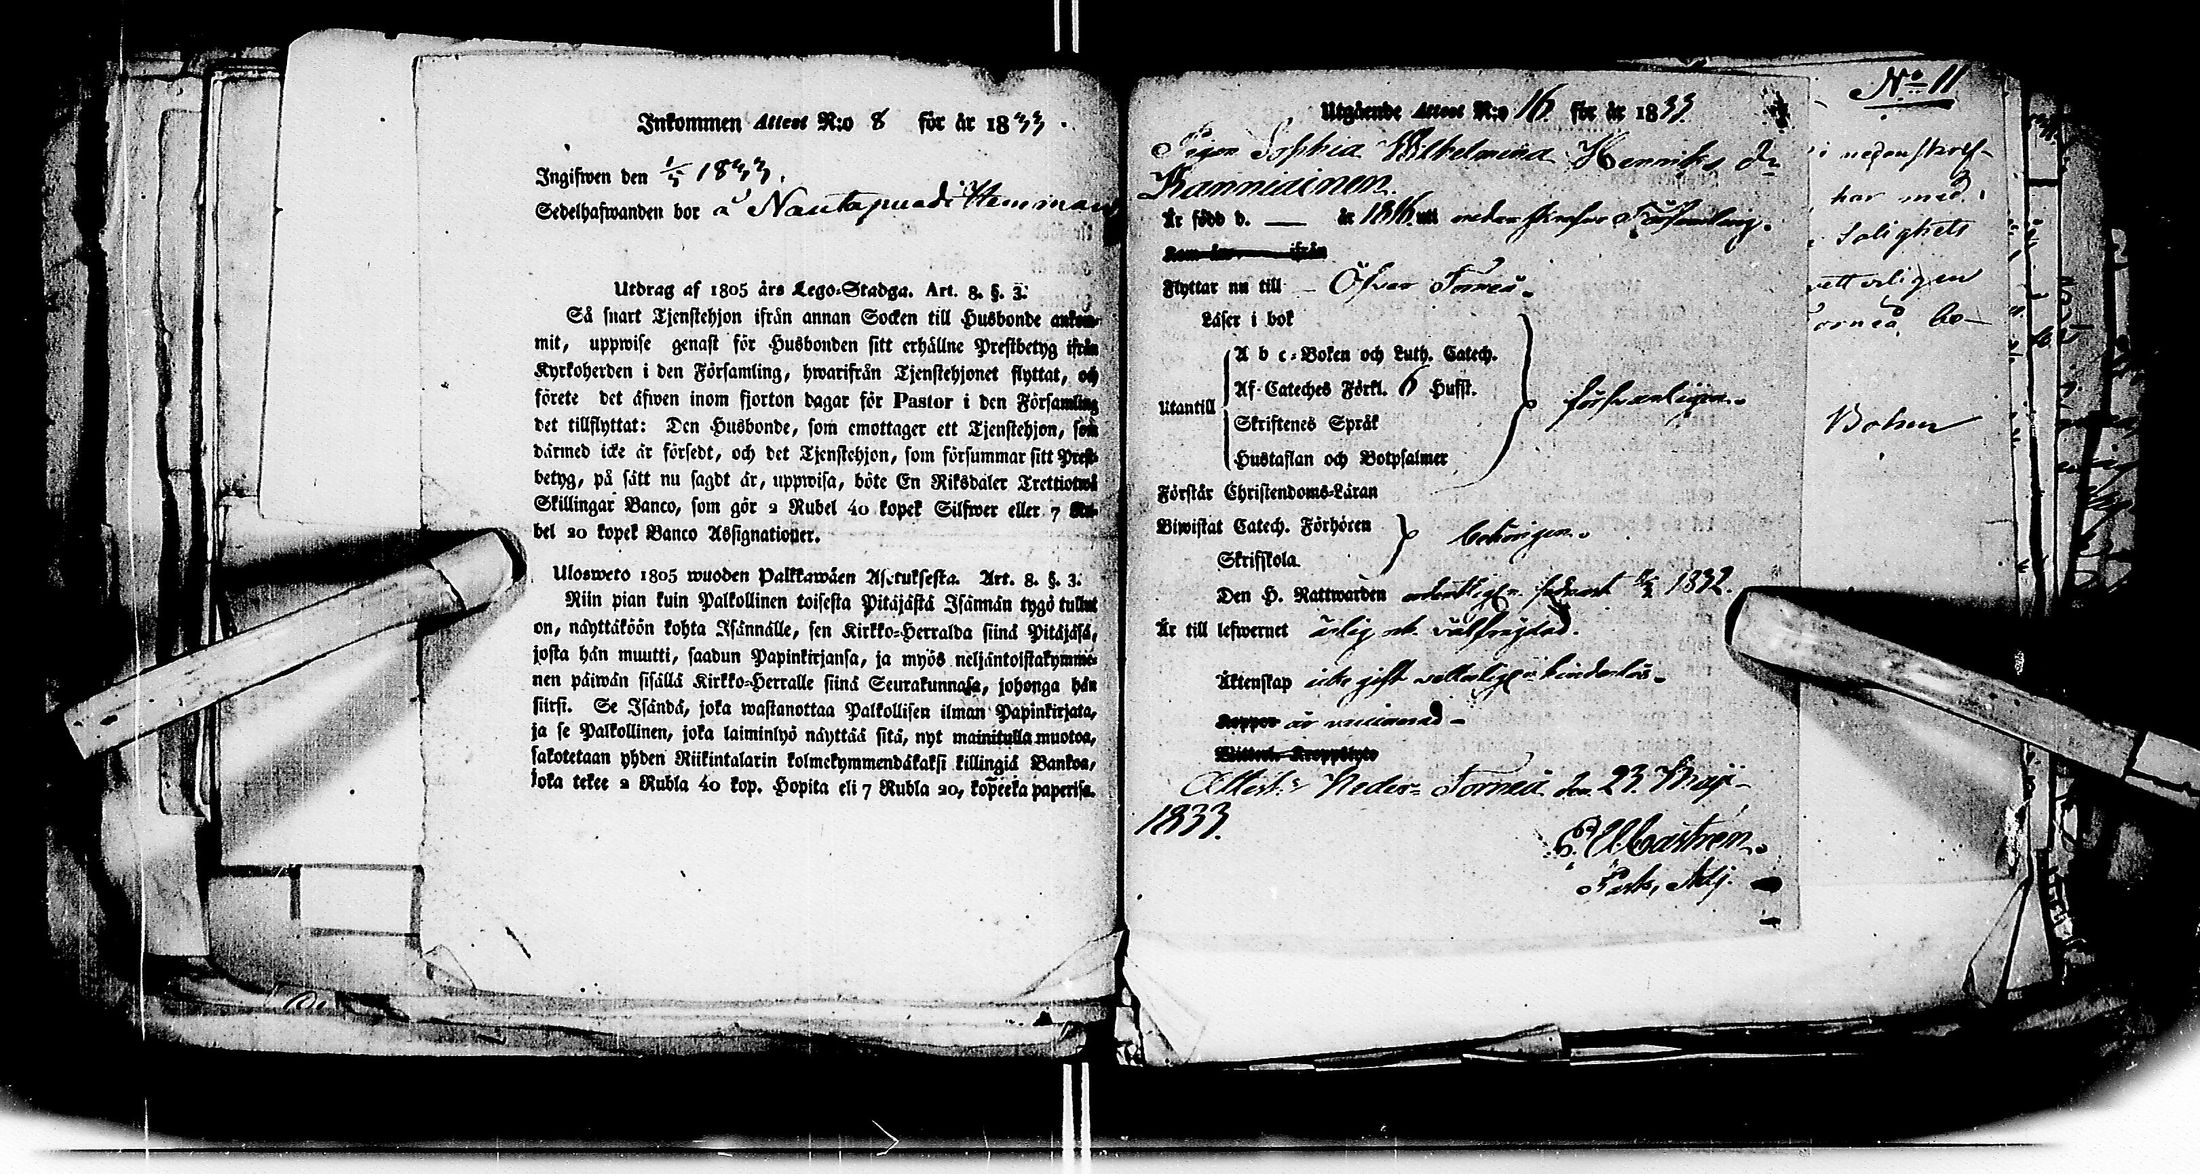 Inkommen Attest N:o 8 för år 1833.
Ingifwen den 1/5 1833.
Sedelhafwanden bor å Nautapuodi Hemman
Utdrag af 1805 års Lego-Stadga. Art. 8. §. 3.
Så snart Tjenstehjon ifrån annan Socken till Husbonde ankom-
mit, uppwise genast för Husbonden sitt erhållne Prestbetyg ifrån
Kyrkoherden i den Församling, hwarifrån Tjenstehjonet flyttat, och
förete det äfwen inom fjorton dagar för Pastor i den Församling
det tillflyttat: Den Husbonde, som emottager ett Tjenstehjon, som
därmed icke är försedt, och det Tjenstehjon, som försummar sitt Prest-
betyg, på sätt nu sagdt är, uppwisa, böte En Riksdaler Trettiotwå
Skillingar Banco, som gör 2 Rubel 40 kopek Silfwer eller 7 Ru-
bel 20 kopek Banco Assignationer.
Ulosweto 1805 wuoden Palkkawäen Asetuksesta. Art. 8. §. 3.
Niin pian kuin Palkollinen toisesta Pitäjästä Isännän tygö tullut
on, näyttäköön kohta Isännälle, sen Kirkko-Herralda siinä Pitäjäsä,
josta hän muutti, saadun Papinkirjansa, ja myös neljäntoistakymme-
nen päiwän sisällä Kirkko-Herralle siinä Seurakunnasa, johonga hän
siirsi. Se Isändä, joka wastanottaa Palkollisen ilman Papinkirjata,
ja se Palkollinen, joka laiminlyö näyttää sitä, nyt mainitulla muotoa,
sakotetaan yhden Riikintalarin kolmekymmendäkaksi killingiä Bankoa,
joka tekee 2 Rubla 40 kop. Hopita eli 7 Rubla 20, kopeeka paperisa.
Utgående Attest N:o 16 för år 1833
Pigan Sophia Wilhelmina Henriks dr
Kanniainen
Är född d. — år 1816 uti nedanskrefne Församling.
Kom år ifrån
Flyttar nu till Öfver Torneå.
Läser i bok
A b c-Boken och Luth. Catech.
Af Cateches Förkl. 6 Hufst.
Utantill
Skriftenes Språk
Hustaflan och Botpsalmer
försvarligen.
Förstår Christendoms-Läran
Biwistat Catech. Förhören
Skriftskola.
behörigen.
Den H. Nattwarden ordentligen sednast 1832.
Är till lefwernet ärlig och välfrejdad.
Äktenskap icke gift vetterligen hinderlös.
Koppor är vaccinerad
Witterl. Kroppslyte
Attest:r Neder-Torneå den 23 Maji
1833.
Castrén.
Past. Adj.
No 11
i nedanskref-
har med
Salighets
vetterligen
Torneå be-
Bohm